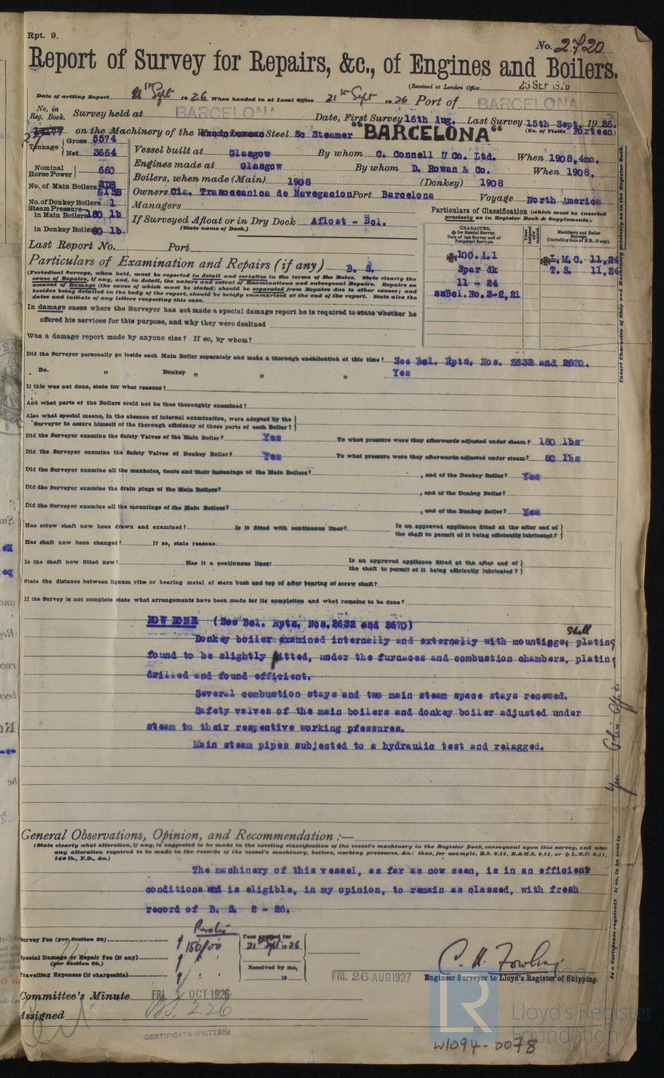 Rpt. 9.
No. 2720
Report of Survey for Repairs, &c., of Engines and Boilers.
(Received at London Office 25 SEP 1926
Date of writing Report 21st Sept 1926 When handed in at Local Office 21st Sept 1926 Port of BARCELONA
No. in Reg. Book. Survey held at BARCELONA Date, First Survey 16th Aug. Last Survey 15th Sept. 1926.
(No. of Visits Forteen)
on the Machinery of the Steel Sc Steamer "BARCELONA"
Tonnage Gross 5574
Net 3664
Vessel built at Glasgow By whom C. Connell U Co. Ltd. When 1908, 4mo.
Engines made at Glasgow By whom D. Rowan & Co. When 1908,
Nominal Horse Power 660
Boilers, when made (Main) 1908 (Donkey) 1908
No. of Main Boilers
Owners Cia. Trasoceanica de Navegacion Port Barcelona Voyage North America
No. of Donkey Boilers 1
Managers
Steam Pressure in Main Boilers 180 lb
in Donkey Boilers 80 lb
If Surveyed Afloat or in Dry Dock Afloat - Bcl.
(State name of Dock.)
Particulars of Classification (which must be inserted precisely as in Register Book & Supplements).
Last Report No. Port
Particulars of Examination and Repairs (if any) B. S.
✠100.A.1
Spar dk
11 - 24
ssBcl.No.3-2,21
✠L.M.C. 11,24
T.S. 11,24
In damage cases where the Surveyor has not made a special damage report he is required to state whether he
offered his services for this purpose, and why they were declined
Was a damage report made by anyone else? If so, by whom?
Did the Surveyor personally go inside each Main Boiler separately and make a thorough examination at this time? See Bcl. Rpts. Nos. 2632 and 2670.
Do. " Donkey " " " Yes
If this was not done, state for what reasons?
And what parts of the Boilers could not be thus thoroughly examined?
Also what special means, in the absence of internal examination, were adopted by the
Surveyor to assure himself of the thorough efficiency of these parts of each Boiler?
Did the Surveyor examine the Safety Valves of the Main Boiler? Yes To what pressure were they afterwards adjusted under steam? 180 lbs
Did the Surveyor examine the Safety Valves of Donkey Boiler? Yes To what pressure were they afterwards adjusted under steam? 80 lbs
Did the Surveyor examine all the manholes, doors and their fastenings of the Main Boilers? , and of the Donkey Boiler? Yes
Did the Surveyor examine the drain plugs of the Main Boilers? , and of the Donkey Boiler?
Did the Surveyor examine all the mountings of the Main Boilers? , and of the Donkey Boiler? Yes
Has screw shaft now been drawn and examined? Is it fitted with continuous liner? Is an approved appliance fitted at the after end of
the shaft to permit of it being efficiently lubricated?
Has shaft now been changed? If so, state reasons
Is the shaft now fitted new? Has it a continuous liner? Is an approved appliance fitted at the after end of
the shaft to permit of it being efficiently lubricated?
State the distance between lignum vitæ or bearing metal of stern bush and top of after bearing of screw shaft?
If the Survey is not complete state what arrangements have been made for its completion and what remains to be done?
NOW DONE (See Bcl. Rpts. Nos.2632 and 2670)
Donkey boiler examined internally and externally with mountings; Shell plating
found to be slightly pitted, under the furnaces and combustion chambers, plating
drilled and found efficient.
Several combustion stays and two main steam space stays renewed.
Safety valves of the main boilers and donkey boiler adjusted under
steam to their respective working pressures.
Main steam pipes subjected to a hydraulic test and relagged.
General Observations, Opinion, and Recommendation :—
(State clearly what alteration, if any, is suggested to be made in the existing classification of the vessel's machinery in the Register Book, consequent upon this survey, and also
any alteration required to be made in the records of the vessel's machinery, boilers, working pressures, &c.: thus, for example, B.S. 9,11, B.&M.S. 9,11, or ✠ L.M.C. 9,11,
140 lb., F.D., &c.)
The machinery of this vessel, as far as now seen, is in an efficient
condition and is eligible, in my opinion, to remain as classed, with fresh
record of B. S. 2 - 26.
Survey Fee (per Section 29)
Special Damage or Repair Fee (if any)
(per Section 29.)
Travelling Expenses (if chargeable)
Fees applied for
21 Sept 1926
Received by me,
FRI. 26 AUG 1927
Engineer Surveyor to Lloyd's Register of Shipping.
Committee's Minute FRI. 1 OCT 1926
Assigned BS. 2.26
CERTIFICATE WRITTEN
LR
Lloyd's Register
Foundation
W1094-0078